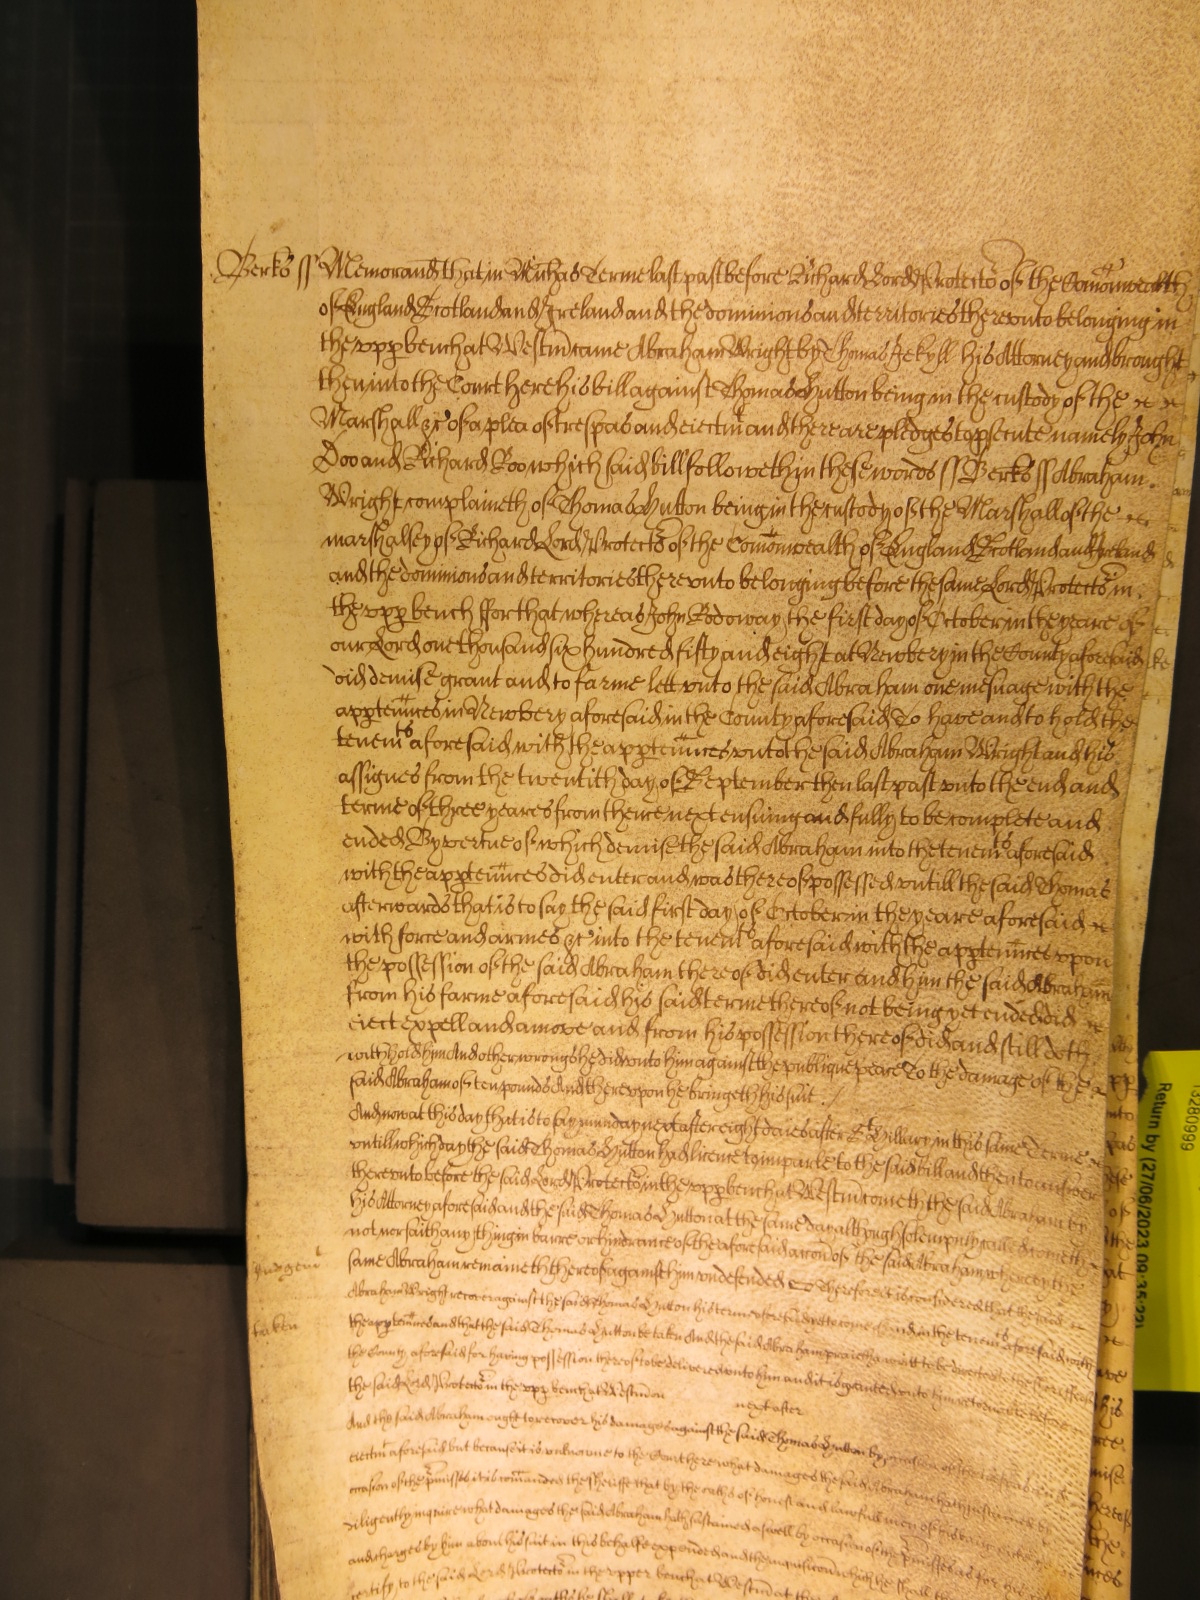 Berks ss Memorand that in Michas Terme last past before Richard Lord Protector of the Comonwealth
of England Scotland and Ireland and the dominions and territories therevnto belonging in
the vpp bench at Westm came Abraham Wright by Thomas Jekyll his Attorney and brought
then into the Court here his bill against Thomas Hutton being in the custody of the
Marshall &c of a plea of trespas and eiectmt and there are pledges to psecute namely John
Doo and Richard Roo which said bill followeth in these words ss Berks ss Abraham
Wright complaineth of Thomas Hutton being in the custody of the Marshall of the
marshalsey of Richard Lord Protector of the Comonwealth of England Scotland and Ireland
and the dominions and territories therevnto belonging before the same Lord Protector in
the vpp bench ffor that whereas John Rodoway the first day of October in the yeare of
our Lord one thousand six hundred fifty and eight at Newbery in the County aforesaid
did demise grant and to farme lett vnto the said Abraham one mesuage with the
apptennces in Newbery aforesaid in the County aforesaid To have and to hold the
tenemts aforesaid with the apptennces vnto the said Abraham Wright and his
assignes from the twentith day of September then last past vnto the end and
terme of three yeares from thence next ensuing and fully to be complete and
ended By vertue of which demise the said Abraham into the tenemts aforesaid
with the apptennces did enter and was thereof possessed vntill the said Thomas
afterwards that is to say the said first day of October in the yeare aforesaid
with force and armes &c into the tenemts aforesaid with the apptennces vpon
the possession of the said Abraham thereof did enter and him the said Abraham
from his farme aforesaid his said terme thereof not being yet ended did
eiect expell and amove and from his possession thereof did and still doth
withhold him And other wrongs he did vnto him against the publique peace To the damage of the
said Abraham of ten pounds And therevpon he bringeth his suit
And now at this day that is to say munday next after eight daies after St Hillary in this same Terme
vntill which day the said Thomas Hutton had licence to imparle to the said bill and then to answer
therevnto before the said Lord Protector in the vpp bench at Westm cometh the said Abraham by
his Attorney aforesaid and the said Thomas Hutton at the same day although solempnly called cometh
not nor saith any thing in barre or hindrance of the aforesaid accon of the said Abraham whereby the
same Abraham remaineth thereof against him vndefended Therefore it is considered that the said
Abraham Wright recover against the said Thomas Hutton his terme aforesaid yet to come and in the tenemts aforesaid with
taken
the apptennces and that the said Thomas Hutton be taken And the said Abraham praieth a writt to be directed to the sheriffe of
the County aforesaid for having possession thereof to be delivered vnto him and it is graunted vnto him retornable before
the said Lord Protector in the vpp bench at Westm on
next after
And the said Abraham ought to recover his damages against the said Thomas Hutton by occasion of the trespas and
eiectmt aforesaid but because it is unknowne to the Court here what damages the said Abraham hath susteined by
occasion of the pmisses it is comanded the sheriffe that by the oaths of honest and lawfull men of his
diligently inquire what damages the said Abraham hath sustained aswell by occasion of the pmisses as for his
and charges by him about his suit in this behalfe expended and the inquisicon which he shall
certify to the said Lord Protector in the vpper bench at Westm at the
Return by (27/06/2023 09:35:22)
13280999